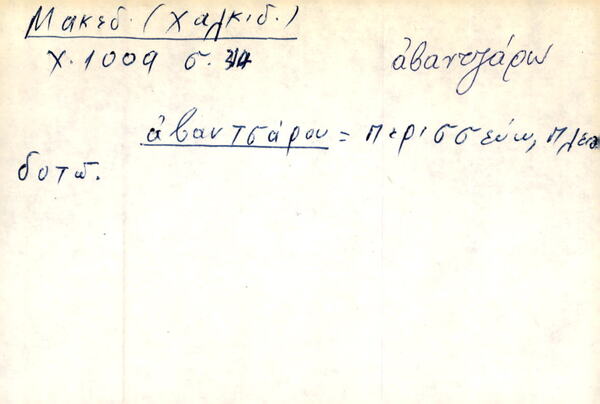 Μακεδ. (Χαλκιδ.)
χ. 1009 σ. 314
ἀβαντζάρω
ἀβαντσάρου = περισσεύω, πλεο
δοτῶ.